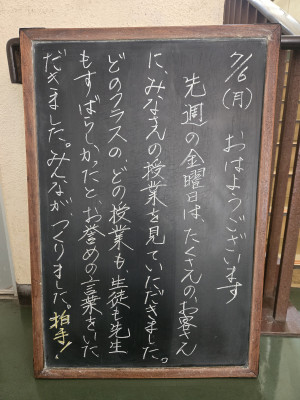 7/6(月) おはようございます
先週の金曜日は、たくさんのお客さん
に、みなさんの授業を見ていただきました。
どのクラスの、どの授業も、生徒も先生
もすばらしかったと、お誉めの言葉をいた
だきました。みんなが、つくりました。拍手!